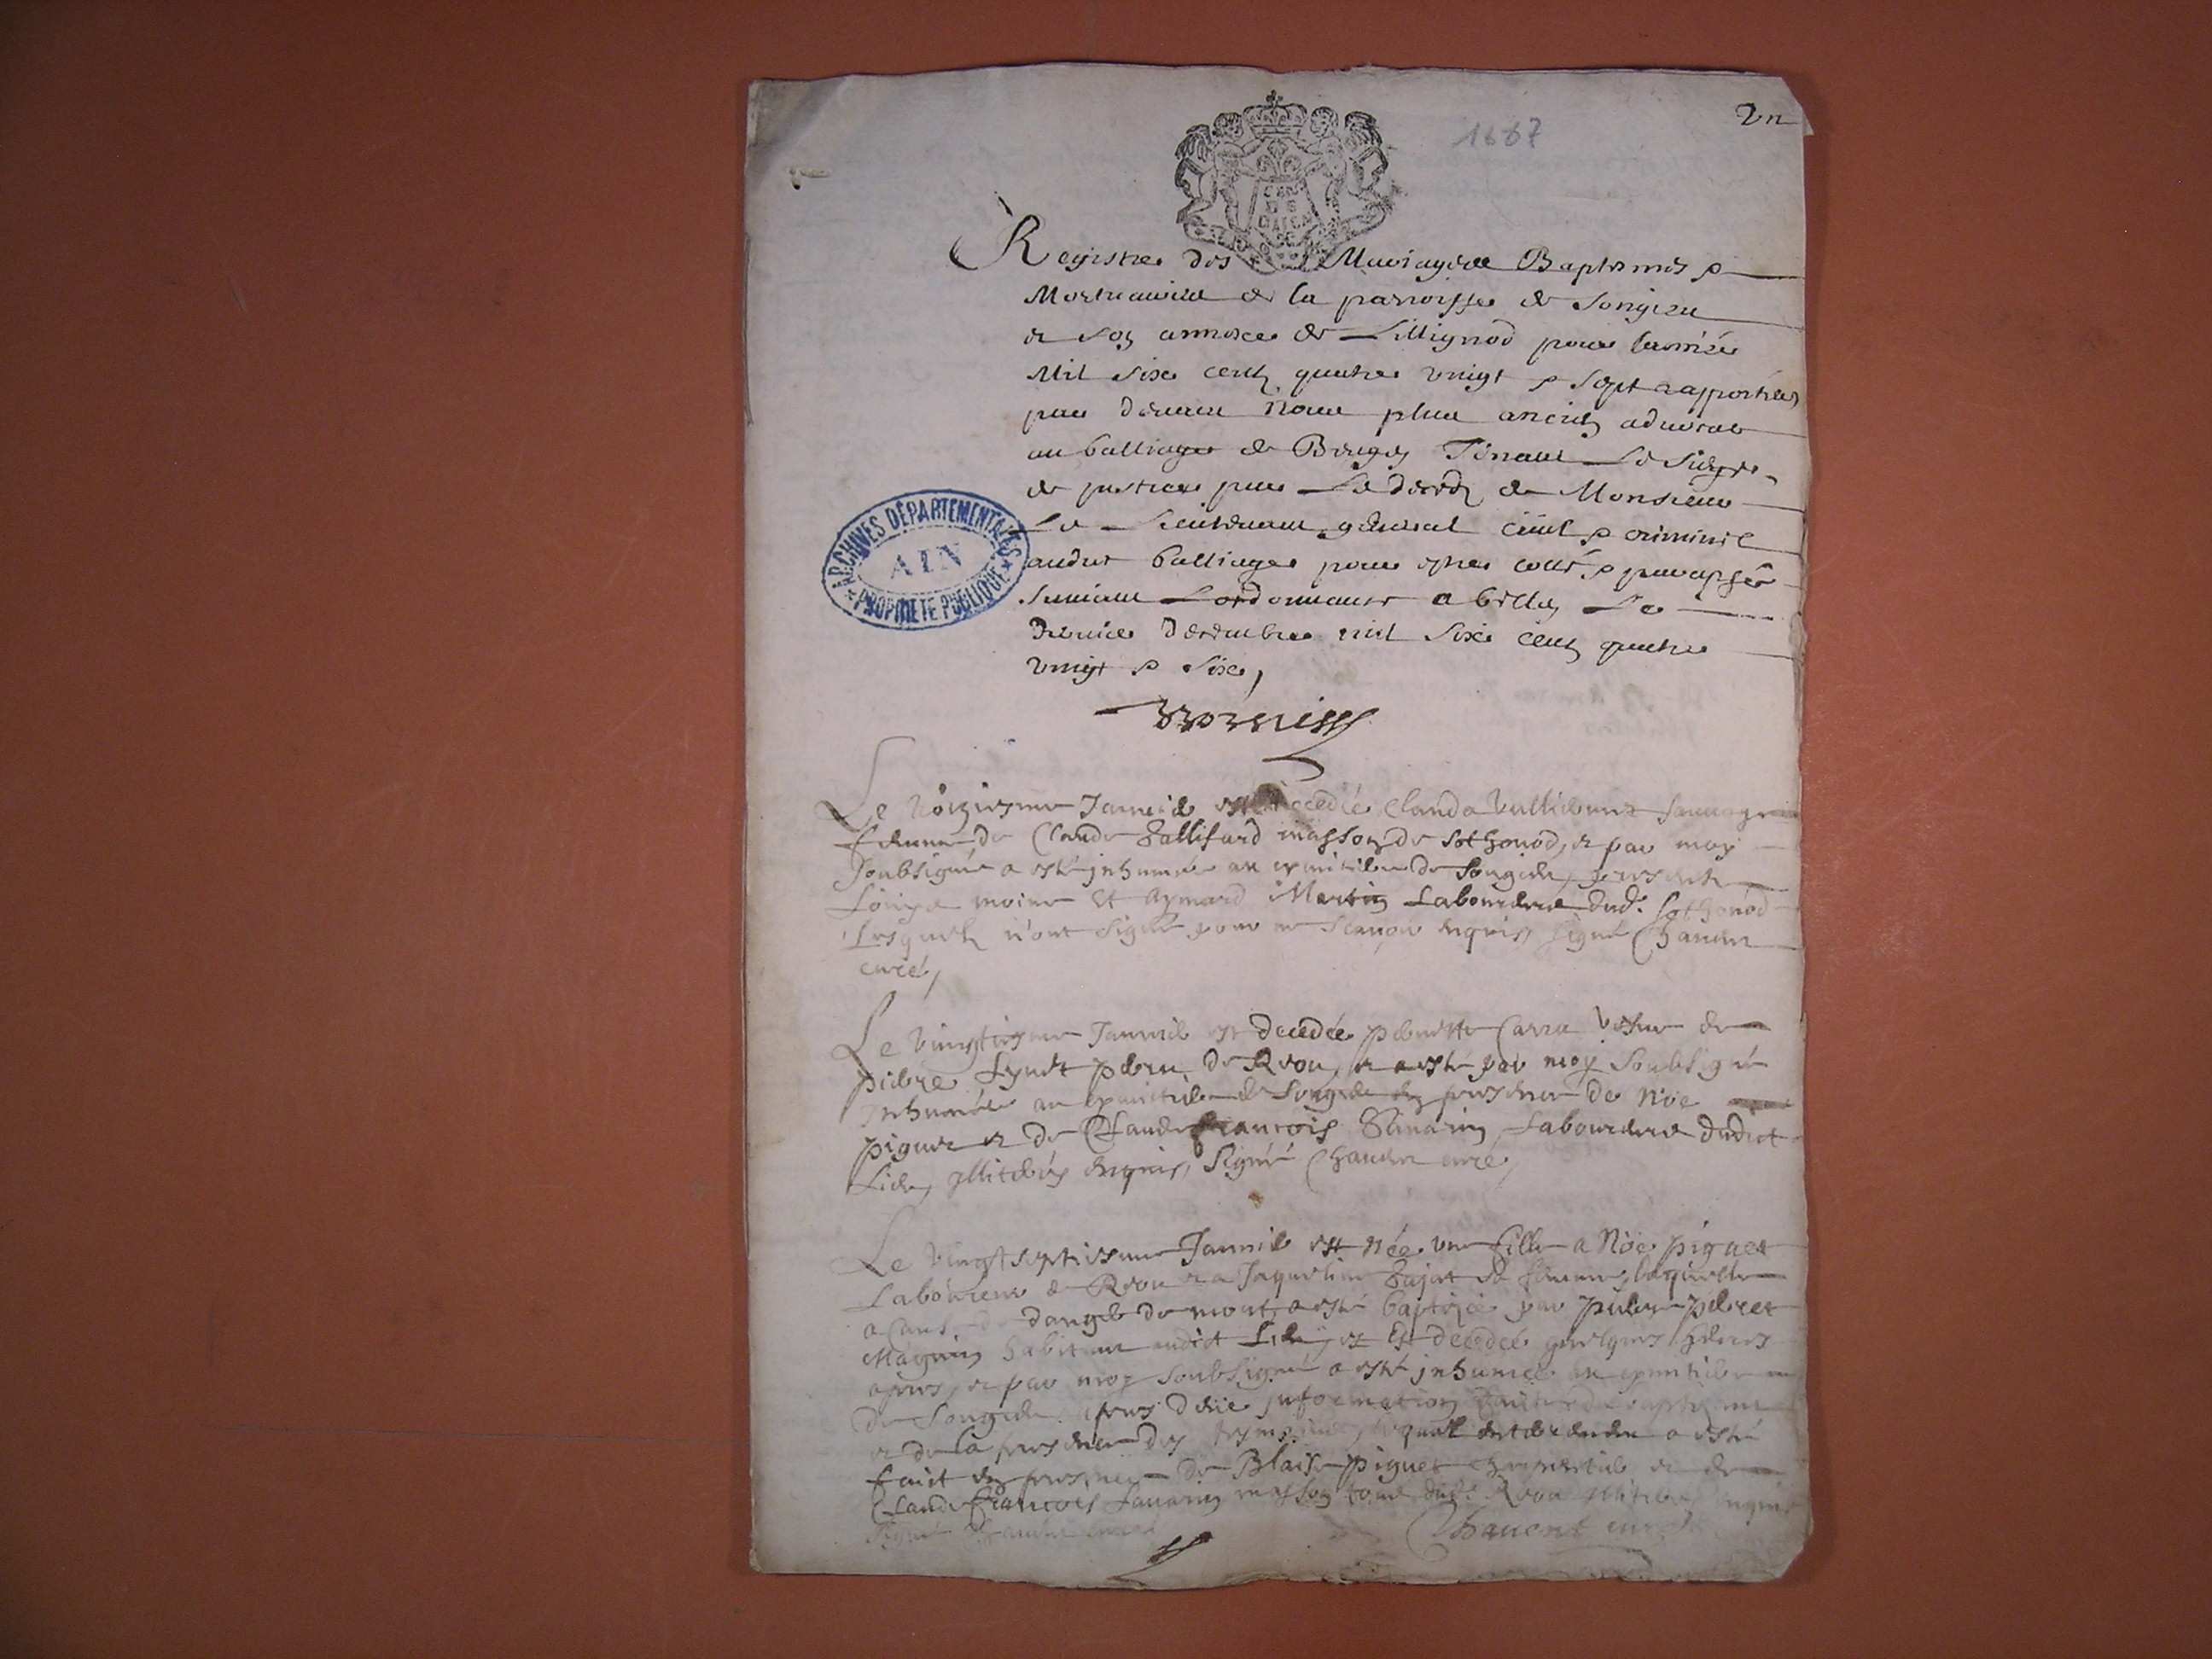 1687
Vn
Registre des Mariages Baptesmes &
Mortuaires de la parroisse de Songieu
et son annexe de Lillignod pour lannée
Mil six centz quatre vingt & sept rapportées
par devant Nous plus ancien advocat
au balliage de Beugey Tenant Le siege
de justice par Le decedz de Monsieur
Le Lieutenant general civil & criminel
audict balliage pour estre cotté & paraphé
suivant Lordonnance a belley Le
dernier decembre mil six centz quatre
vingt & six,
ARCHIVES DÉPARTEMENTALES
AIN
PROPRIÉTÉ PUBLIQUE
Le Janvier est decedée Clauda
femme de Claude masson de Sothonod, et par moy
soubsigné a esté inhumée au cymitiere de Songieu, presentz
Loüys moine Et Aymard Martin Laboureurs dud. Sothonod
Lesquelz n'ont signé pour ne sçavoir enquis, signé Chavent
curé,
Le vingtiesme Janvier est decedée pernette Carra vefve de
pierre de Reou, et a esté par moy soubsigné
Inhumée au cymitiere de Songieu en presence de Noë
piguet et de Claude francois Savarin Laboureurs dudict
Lieu, illiterés enquis, signé Chavent curé,
Le vingt septiesme Janvier est née une fille a Noë piguet
Laboureur de Reou et a Jaqueline sa femme, laquelle
a cause de danger de mort, a esté baptizée par
Magnin habitant audict Lieu, et Est decedée quelques heures
apres, et par moy soubsigné a esté inhumée au cymitiere
de Songieu apres deüe information
et de la presence des lequel enterrement a esté
fait en presence de Blaise piguet charpentier et de
Claude francois Savarin masson tous dud. Reou illiterés enquis
signé Chavent curé
Chavent curé